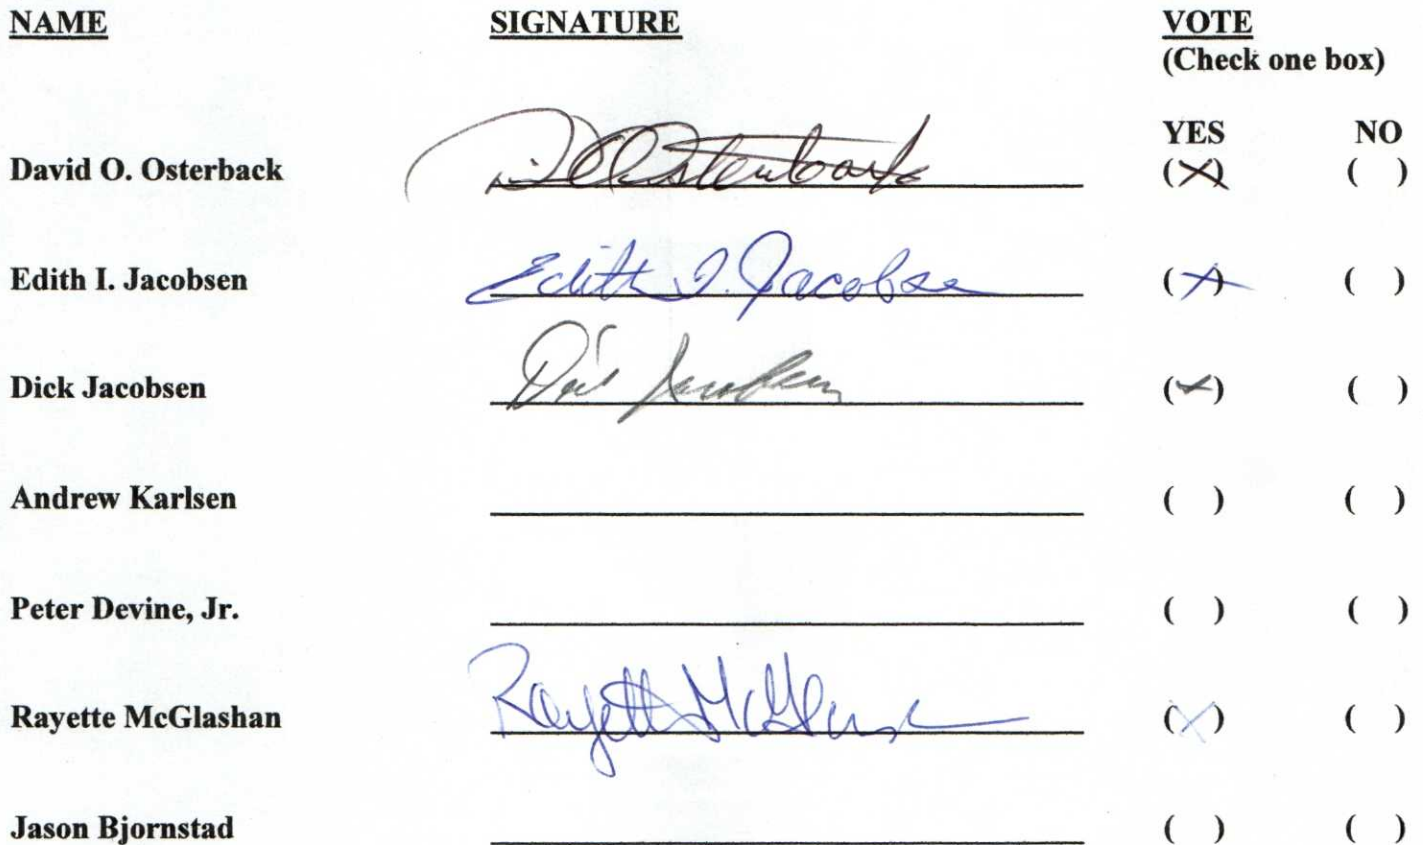 NAME SIGNATURE VOTE
(Check one box)
YES NO
David O. Osterback D O Osterback (X) ( )
Edith I. Jacobsen Edith I. Jacobsen (X) ( )
Dick Jacobsen Dick Jacobsen (X) ( )
Andrew Karlsen ( ) ( )
Peter Devine, Jr. ( ) ( )
Rayette McGlashan Rayette McGlashan (X) ( )
Jason Bjornstad ( ) ( )